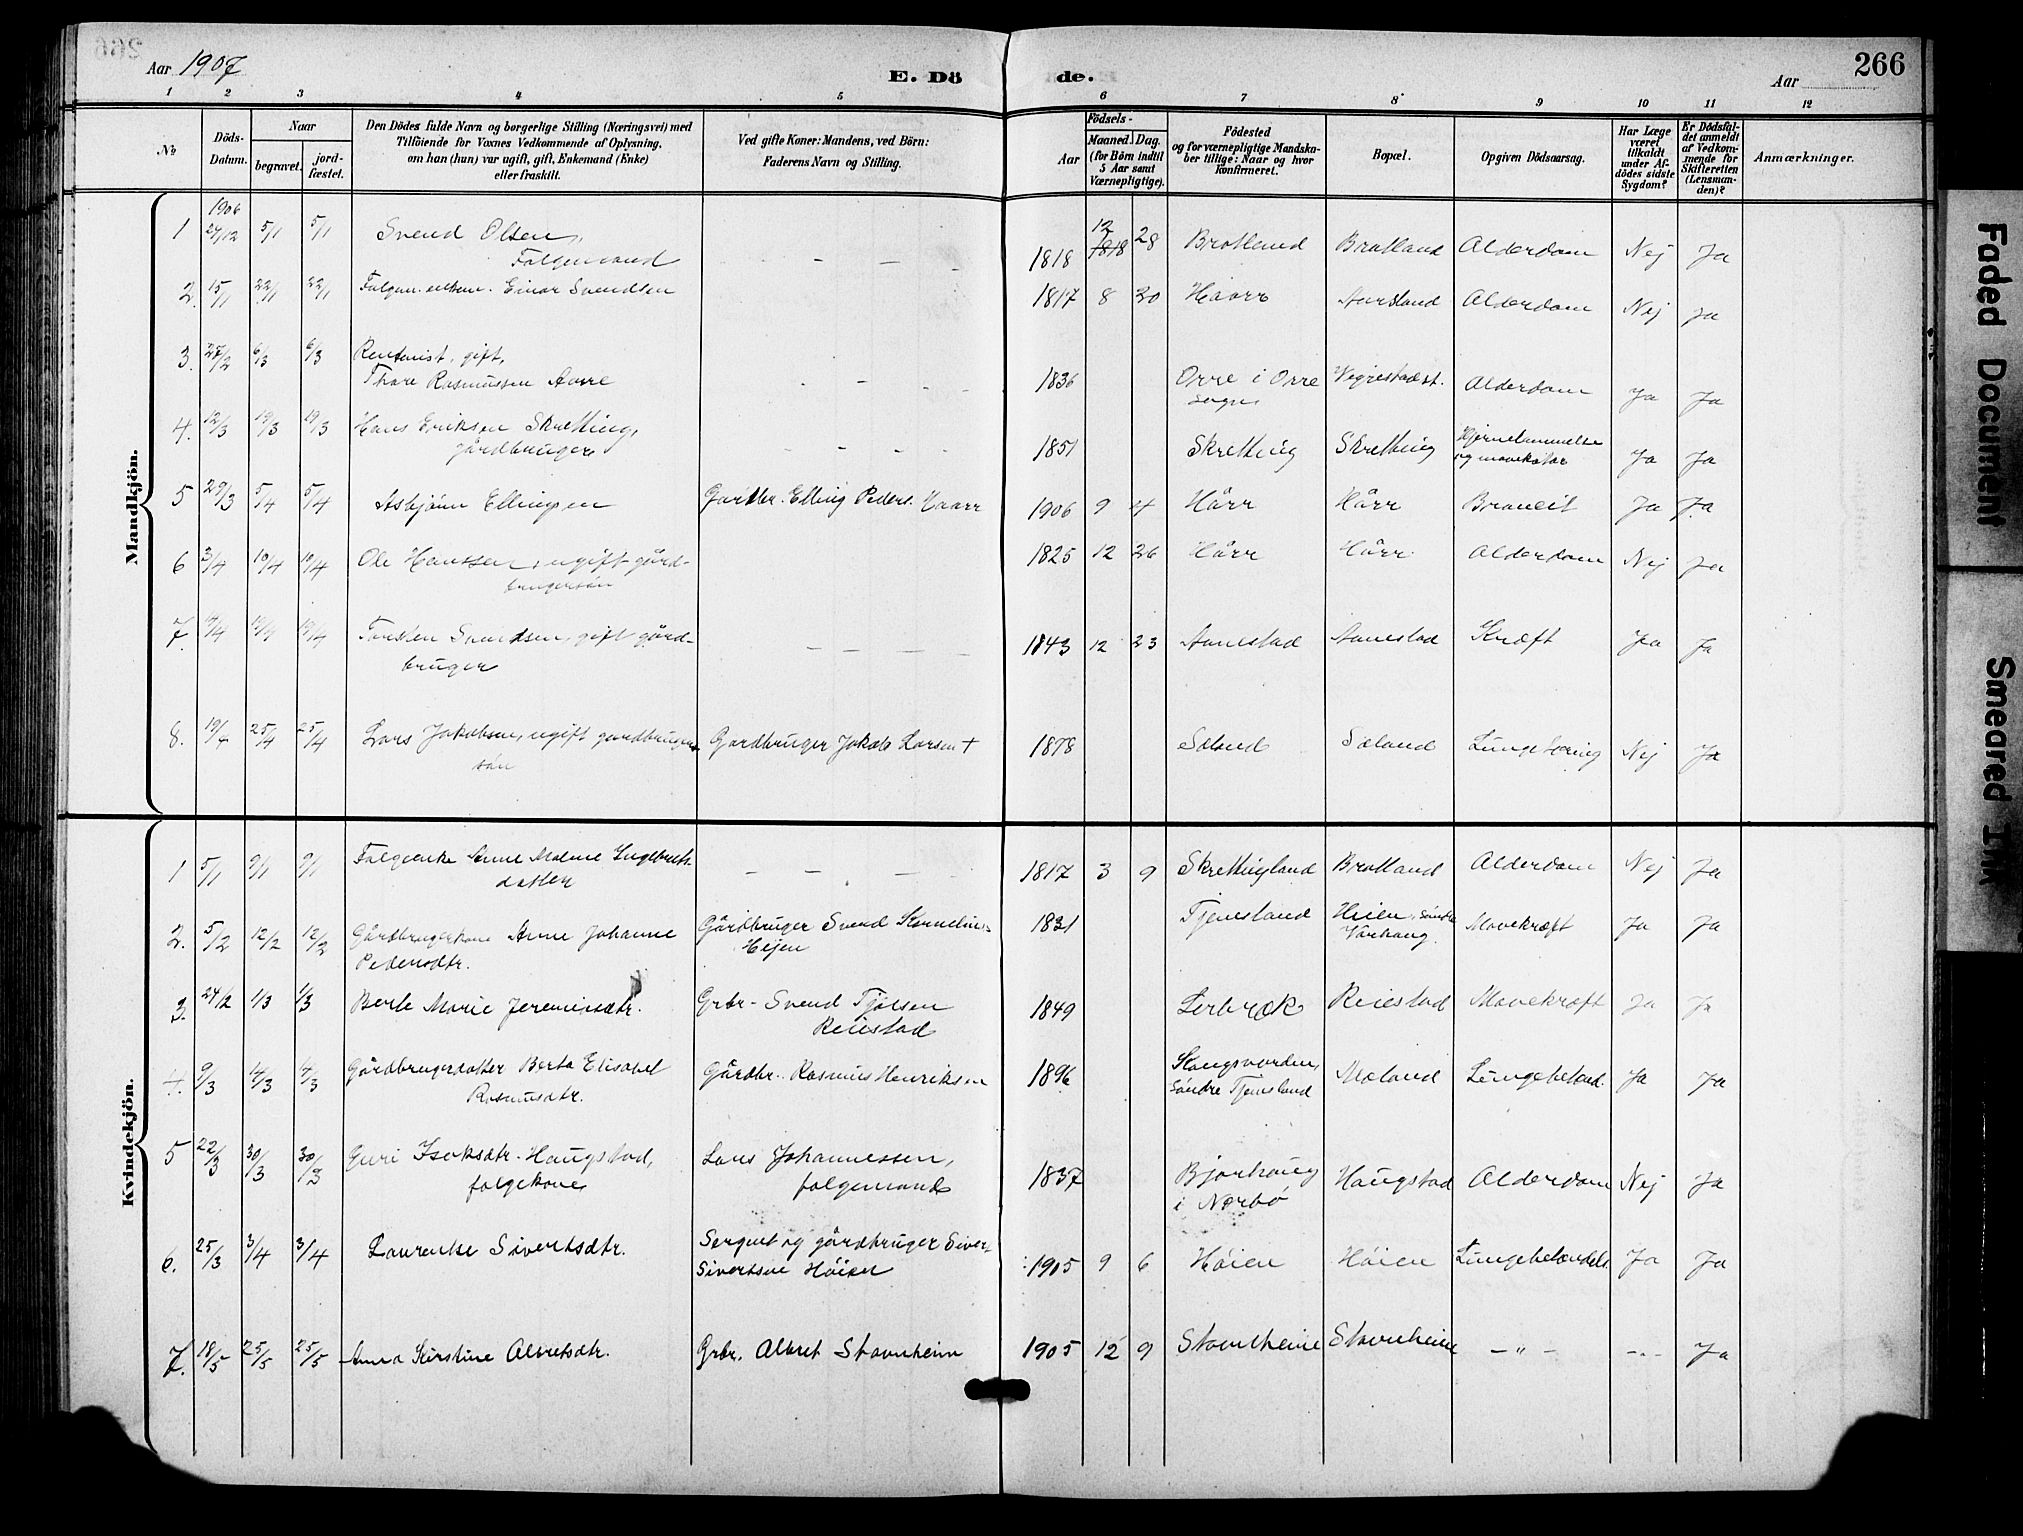 Aar 1907 E. Dö de. Aar 266
1 2 3 4 5 6 7 8 9 10 11 12
№ Döds-Datum. Naar begravet. jordfæstet. Den Dödes fulde Navn og borgerlige Stilling (Næringsvei) med Tilföiende for Voxnes Vedkommende af Oplysning, om han (hun) var ugift, gift, Enkemand (Enke) eller fraskilt. Ved gifte Koner: Mandens, ved Börn: Faderens Navn og Stilling. Födsels- Aar Maaned. Dag. (for Börn indtil 5 Aar samt Værnepligtige). Födested og for værnepligtige Mandskaber tillige: Naar og hvor konfirmeret. Bopæl. Opgiven Dödsaarsag. Har Læge været tilkaldt under Afdödes sidste Sygdom? Er Dödsfaldet anmeldt af Vedkommende for Skifteretten (Lensmanden)? Anmærkninger.
Mandkjön.
1906
1 27/12 5/1 5/1 Svend Olsen, Folgemand 1818 12 28 Bratland Bratland Alderdom Nej Ja
2. 15/1 22/1 22/1 Folgem. enkem. Einar Svendsen 1817 8 30 Haarr Aarsland Alderdom Nej Ja
3. 27/2 6/3 6/3 Rentenist, gift,
Thore Rasmussen Aarre 1836 Orre i Orre Sogn Vigrestad st. Alderdom Ja Ja
4. 12/3 19/3 19/3 Hans Eriksen Skretting,
gårdbruger 1851 Skretting Skretting Hjernelammelse og mavekatar Ja Ja
5 29/3 5/4 5/4 Asbjönn Ellingsen Gardbr. Elling Peders. Haarr 1906 9 4 Hårr Hårr Broneit Ja Ja
6 3/4 10/4 10/4 Ole Hanssen, ugift gård-
brugersön 1825 12 26 Hårr Hårr Alderdom Nej Ja
7. 14/4 19/4 19/4 Torsten Svendsen, gift gård-
bruger 1843 12 23 Aanestad Aanestad Kræft Ja Ja
8. 19/4 25/4 25/4 Lars Jakobsen, ugift gardbruger
sön Gardbruger Jakob Larsen + 1878 Söland Söland Lungetæring Nej Ja
Kvindekjön.
1 5/1 9/1 9/1 Folgeenke Anne Malene Ingebrets-
datter 1817 3 9 Skrettingland Bratland Alderdom Nej Ja
2. 5/2 12/2 12/2 Gårdbrugerkone Anne Johanne
Pedersdtr. Gårdbruger Svend Kornelius.
Höjen 1831 Tjensland Höien, Söndre Varhaug. Mavekræft Ja Ja
3. 24/2 1/3 1/3 Berte Marie Jeremiasdtr. Grbr. Svend Tjörsen
Reiestad 1849 Lerbræk Reiestad Mavekræft Ja Ja
4. 9/3 14/3 14/3 Gårdbrugerdatter Berta Elisabet
Rasmusdtr. Gårdbr. Rasmus Henriksen 1896 Stangsvorden, Söndre Tjensland Mæland Lungebetænd. Ja Ja
5 22/3 30/3 30/3 Guri Isaksdtr. Haugstad,
folgekone Lars Johannessen,
folgemand 1837 Bjorhaug i Nærbö Haugstad Alderdom Nej Ja
6. 25/3 3/4 3/4 Laurentse Sivertsdtr. Sergent og gårdbruger Sivert
Sivertsen Höien 1905 9 6 Höien Höien Lungebetændels. Ja Ja
7. 18/5 25/5 25/5 Anna Kirstine Albretsdtr. Grbr. Albret Stavnheim 1905 12 9 Stavnheim Stavnheim - " - - . - Ja
Faded Document
Smeared Ink